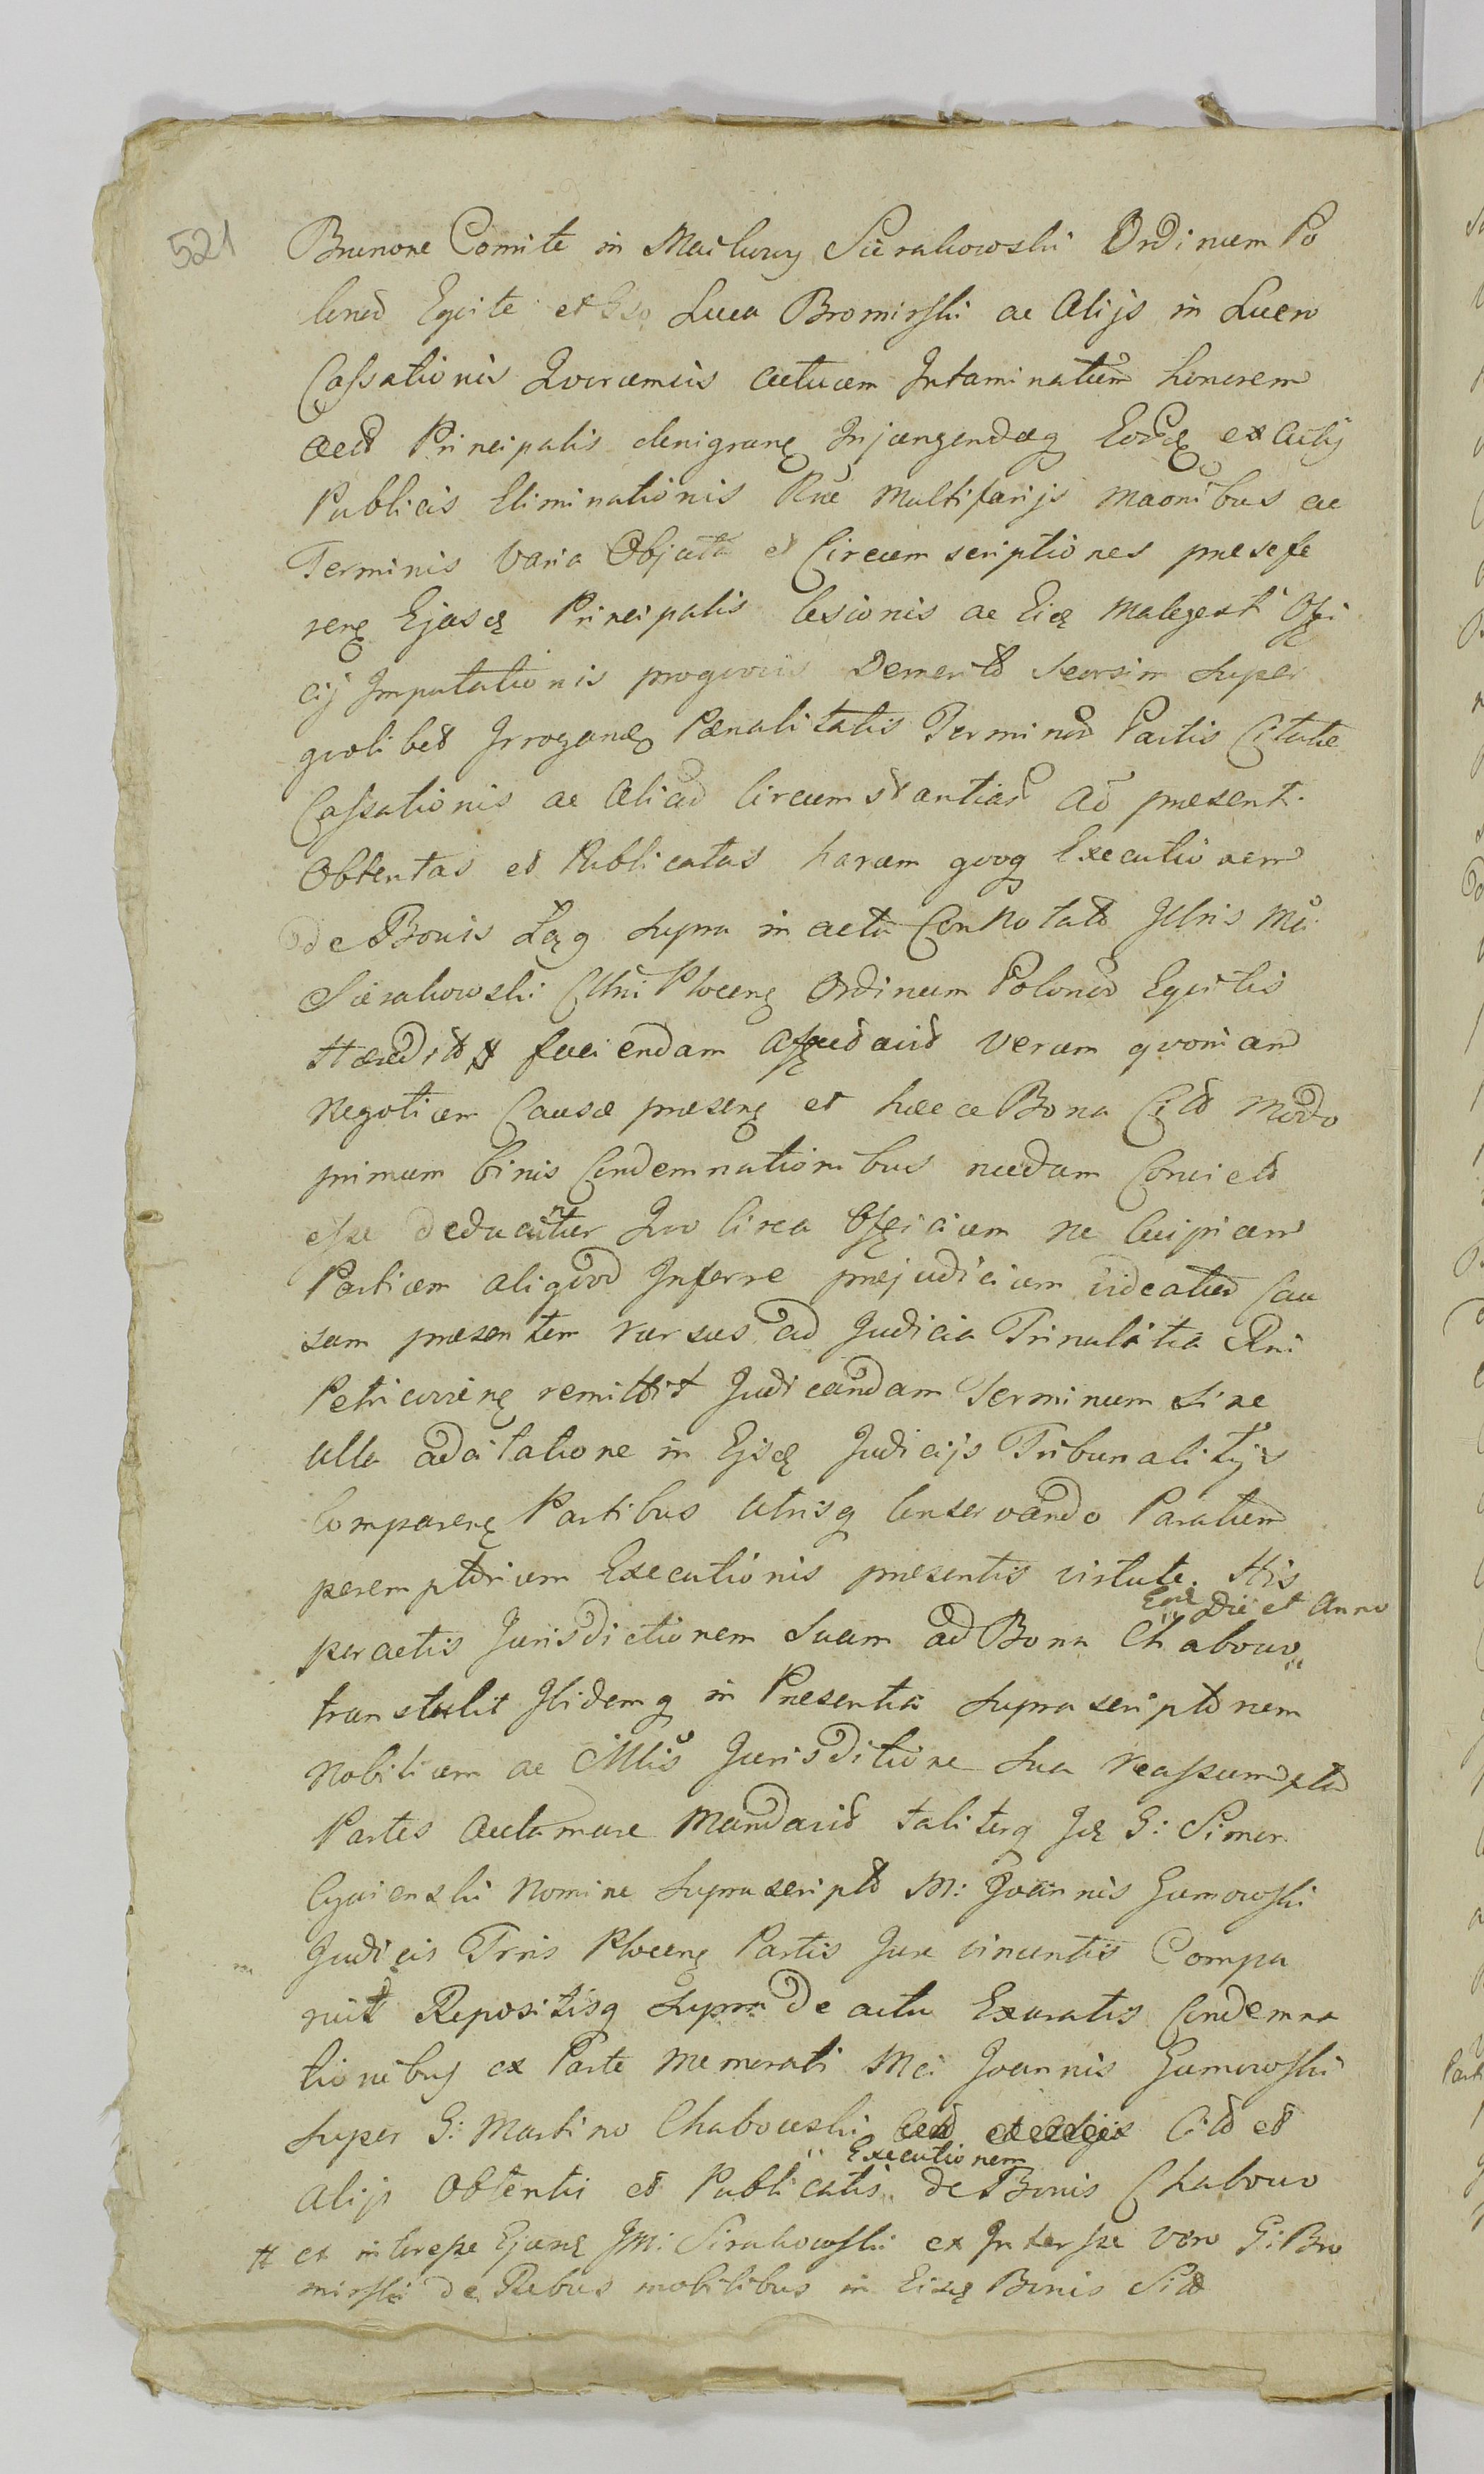 521
Brunone Comite in Machowy Sierakowski Ordinum Po
lonor Eqvite et Gso Luca Bromirski ac Alijs in Lucro
Cassationis Qverimoniis actuum Intaminatum honorem
Principalis denigran Injungendaq Eor ex Actis
Publicis Eliminationis Rne multifarijs maonibus ac
Terminis varia Objecta et Circumscriptiones presefe
ren Ejusd Principalis lesionis ac Eid malegesti Offi
cij Imputationis proqvovis Demerito Seorsim Super
qvolibet Irrogan Pænalitatis Terminor Partis Citatæ
Cassationis ac Aliar Circumstantiar ad present.
Obtentas et Publicatas harum qvoq Executionem
de Bonis Łęg Supra in actu Connotato Illris Mci
Sierakowski Plocen Ordinum Polonor Eqvitis
Hæredit # faciendam Affectavit Verum qvoniam
Negotium Causæ presen et hæcce Bona Cit modo
primum binis Condemnationibus nuedum Convict
esse deducuntur Qvo circa Officium ne Cuipiam
Partium aliqvod Inferre prejudicium videatur Cau
sam presentem rursus ad Judicia Trinalitia Rni
Petricovien remittit Judicandam Terminum Sine
ulla adcitatione in Ejsd Judicijs Tribunalitijs
Comparen Partibus utrisq Conservando Paratum
peremptorium Executionis presentis virtute. His
Eod Die et Anno
peractis Jurisdictionem Suam ad Bona Chabowo
transtulit Ibidemq in Presentia Suprascriptorum
Nobilium ac Mlis Jurisditione Sua reassumpta
Partes Acclamare Mandavit taliterq Id G: Simon
Cywienski Nomine Suprascripto M: Joannis Gumowski
Judicis Tris Plocen Partis Jure vincentis Compa
ruit Repositisq Supra de actu Exaratis Condemna
tionibus ex Parte memorati Mci Joannis Gumowski
Super G: Martino Chabowski Cit et
Executionem
Alijs Obtentis et Publicatis de Bonis Chabowo
# et interesse Ejusd JM: Sirakowski ex Interse vero G: Bro
mirski de Rebus mobilibus in Eisd Bonis Sit